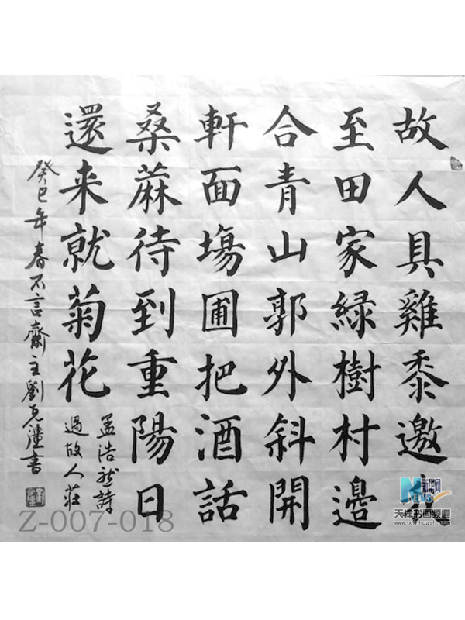 故人具雞黍邀我
至田家綠樹村邊
合青山郭外斜開
軒面塲圃把酒話
桑蔴待到重陽日
還来就菊花
孟浩然詩
過故人莊
癸巳年春不言齋主劉書
Z-007-018